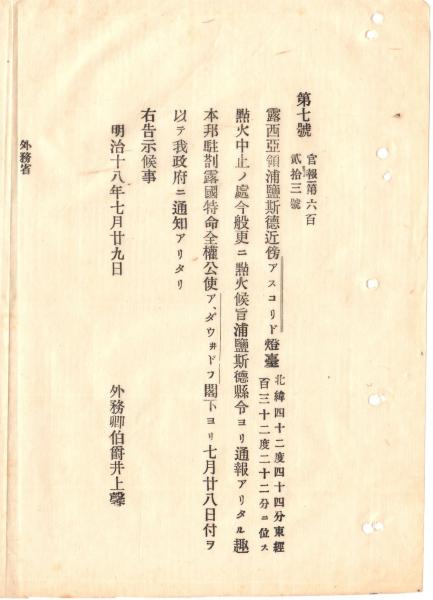 第七號 官報第六百
貳拾三號
露西亞領浦鹽斯德近傍アスコリド燈臺 北緯四十二度四十四分東經
百三十二度二十二分ニ位ス
點火中止ノ處今般更ニ點火候旨浦鹽斯德縣令ヨリ通報アリタル趣
本邦駐劄露國特命全權公使ア、ダウ井ドフ閣下ヨリ七月廿八日付ヲ
以テ我政府ニ通知アリタリ
右告示候事
明治十八年七月廿九日
外務卿伯爵井上馨
外務省